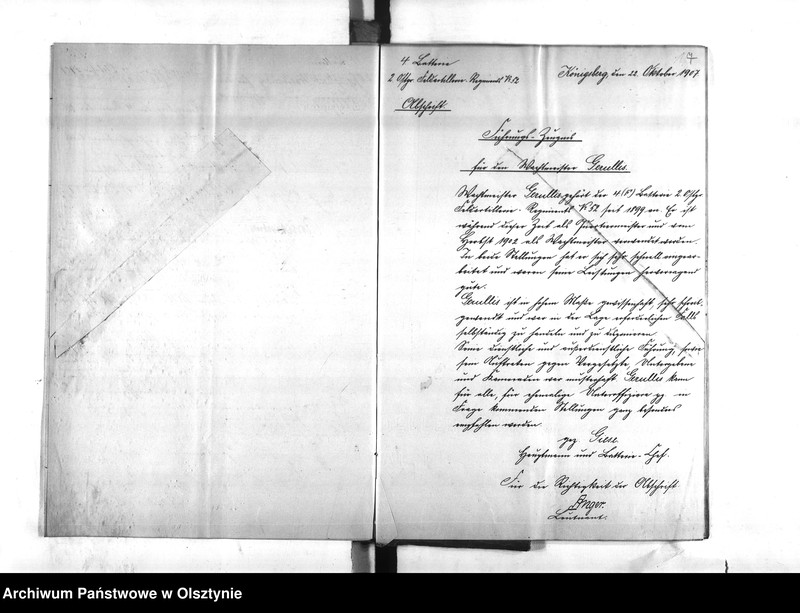 7
4 Batterie
2 Ostpr. Feldartillerie-Regiments No 52
Königsberg, den 22. Oktober 1907
Abschrift
Führungs-Zeugnis
für den Wachtmeister Gerulles.
Wachtmeister Gerulles gehört der 4 (F) Batterie 2 Ostpr
Feldartillerie-Regiments No 52 seit 1899 an. Er ist
während dieser Zeit als Quartiermeister und vom
Herbst 1902 als Wachtmeister verwendet worden.
In beide Stellungen hat er sich sehr schnell eingear-
beitet und waren seine Leistungen hervorragend
gute.
Gerulles ist in hohem Maße gewissenhaft, sehr schreib-
gewandt und war in der Lage erforderlichen Falls
selbständig zu handeln und zu disponieren
Seine dienstliche und außerdienstliche Führung, sowie
sein Auftreten gegen Vorgesetzte, Untergebene
und Kameraden war musterhaft. Gerulles kann
für alle, für ehemalige Unteroffiziere pp in
Frage kommenden Stellungen ganz besonders
empfohlen werden
gez. Giese
Hauptmann und Batterie-Chef.
Für die Richtigkeit der Abschrift
Leutnant.
Archiwum Państwowe w Olsztynie